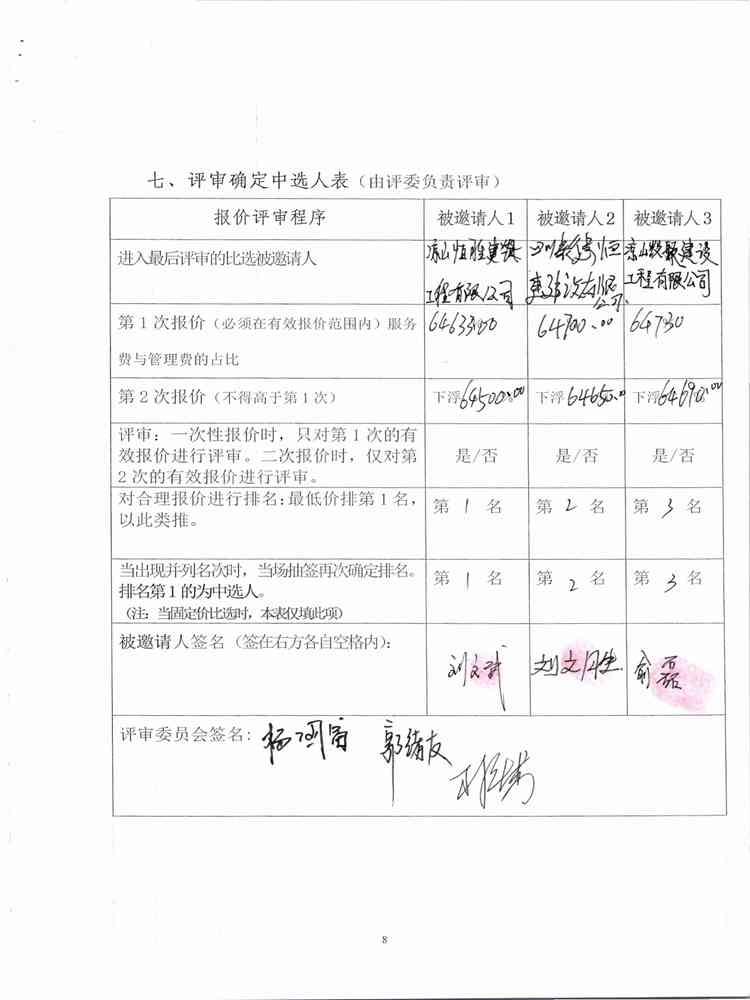 七、评审确定中选人表（由评委负责评审）
报价评审程序 被邀请人1 被邀请人2 被邀请人3
进入最后评审的比选被邀请人 凉山恒雅建筑 四川 恒 凉山 建设
工程有限公司 建 有限 工程有限公司
公司
第1次报价（必须在有效报价范围内）服务 64700.00 64730
费与管理费的占比
第2次报价（不得高于第1次） 下浮64500.00 下浮64650.00 下浮64690.00
评审：一次性报价时，只对第1次的有 是/否 是/否 是/否
效报价进行评审。二次报价时，仅对第
2次的有效报价进行评审。
对合理报价进行排名:最低价排第1名， 第1名 第2名 第3名
以此类推。
当出现并列名次时，当场抽签再次确定排名。 第1名 第2名 第3名
排名第1的为中选人。
（注：当固定价比选时，本表仅填此项）
被邀请人签名（签在右方各自空格内）：
刘文武 刘文 俞磊
评审委员会签名: 杨国富 郭绪友
8